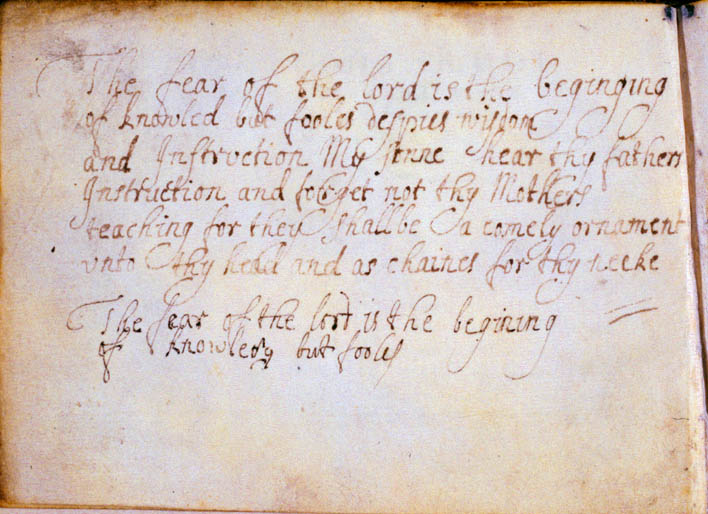 The fear of the lord is the beginging
of knowled but fooles despies wisdom
and Instruction My sonne hear thy fathers
Instruction and forget not thy Mothers
teaching for they shall be a comely ornament
vnto thy head and as chaines for thy necke
The fear of the lord is the begining
of knowledg but fooles